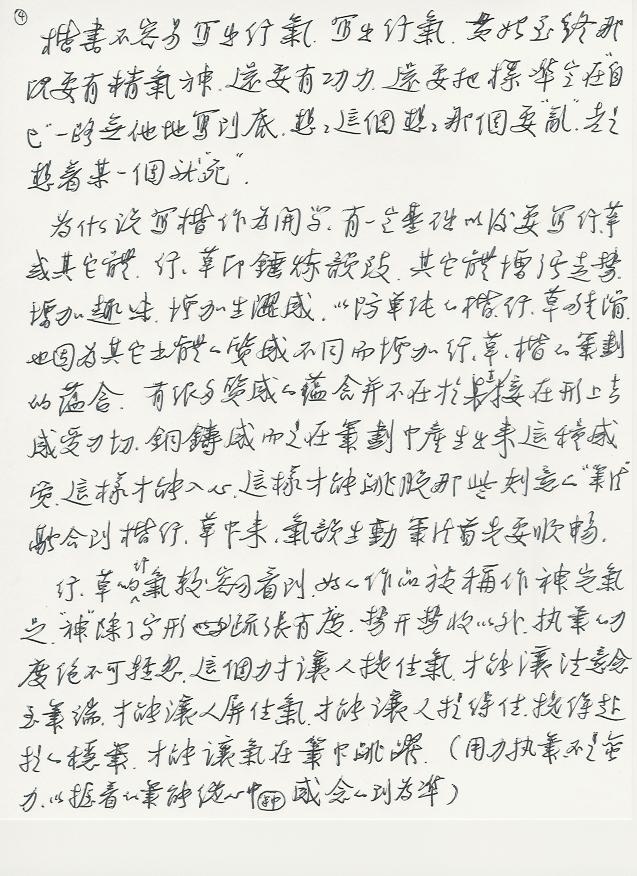 ④
楷書不容易寫出行氣.寫出行氣.貫始至終那
既要有精氣神.還要有功力.還要把標準定在"自
己"一路無他地寫到底.想想這個想想那個要"亂".老是
想着某一個就"死".
為什么说寫楷作為開学.有一定基础以後要寫行.草
或其它體.行.草即錘炼韻致.其它體增強走勢.
增加趣味.增加生澀感.以防單纯的楷.行.草的轻滑.
也因為其它書體的質感不同而增加行.草.楷的筆劃
的蕴含.有很多質感的蕴含并不在於直接在形上去
感受刀切.銅鑄感而是在筆劃中產生出来這種感
覚.這樣才能入心.這樣才能跳脱那些刻意的"筆法"
融会到楷行.草中来.氣韻生動筆法首先要顺畅.
行.草的行氣较容易看到.好的作品被稱作神完氣
足."神"除了字形疏張有度.勢开勢收以外.执筆的力
度絕不可轻忽.這個力才讓人提住氣.才能讓注意念
至筆端.才能讓人屏住氣.才能讓人扵得住.
穩筆.才能讓氣在筆中跳躍.(用力执筆不是蛮
力.以握着的筆能從心中 感念的到為準)